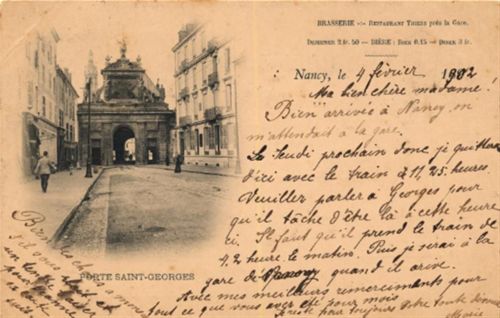 BRASSERIE -:- RESTAURANT THIERS près la Gare.
DEJEUNER 2 fr. 50 — BIÈRE: BOCK 0.15 — DINER 3 fr.
Nancy, le 4 février 1902
Ma bien chère madame.
Bien arrivée à Nancy on
m'attendait à la gare.
Le Jeudi prochain donc je quitterai
d'ici avec le train à 11,25 heures.
Veuillez parler à Georges pour
qu'il tâche d'être là à cette heure
ci. Il faut qu'il prend le train de
4,2 heure le matin. Puis je serai à la
gare de quand il arrive.
Avec mes meilleurs remerciments pour
tout ce que vous avez été pour mois
reste pour toujours Votre toute
Marie
PORTE SAINT-GEORGES
Bien des choses a